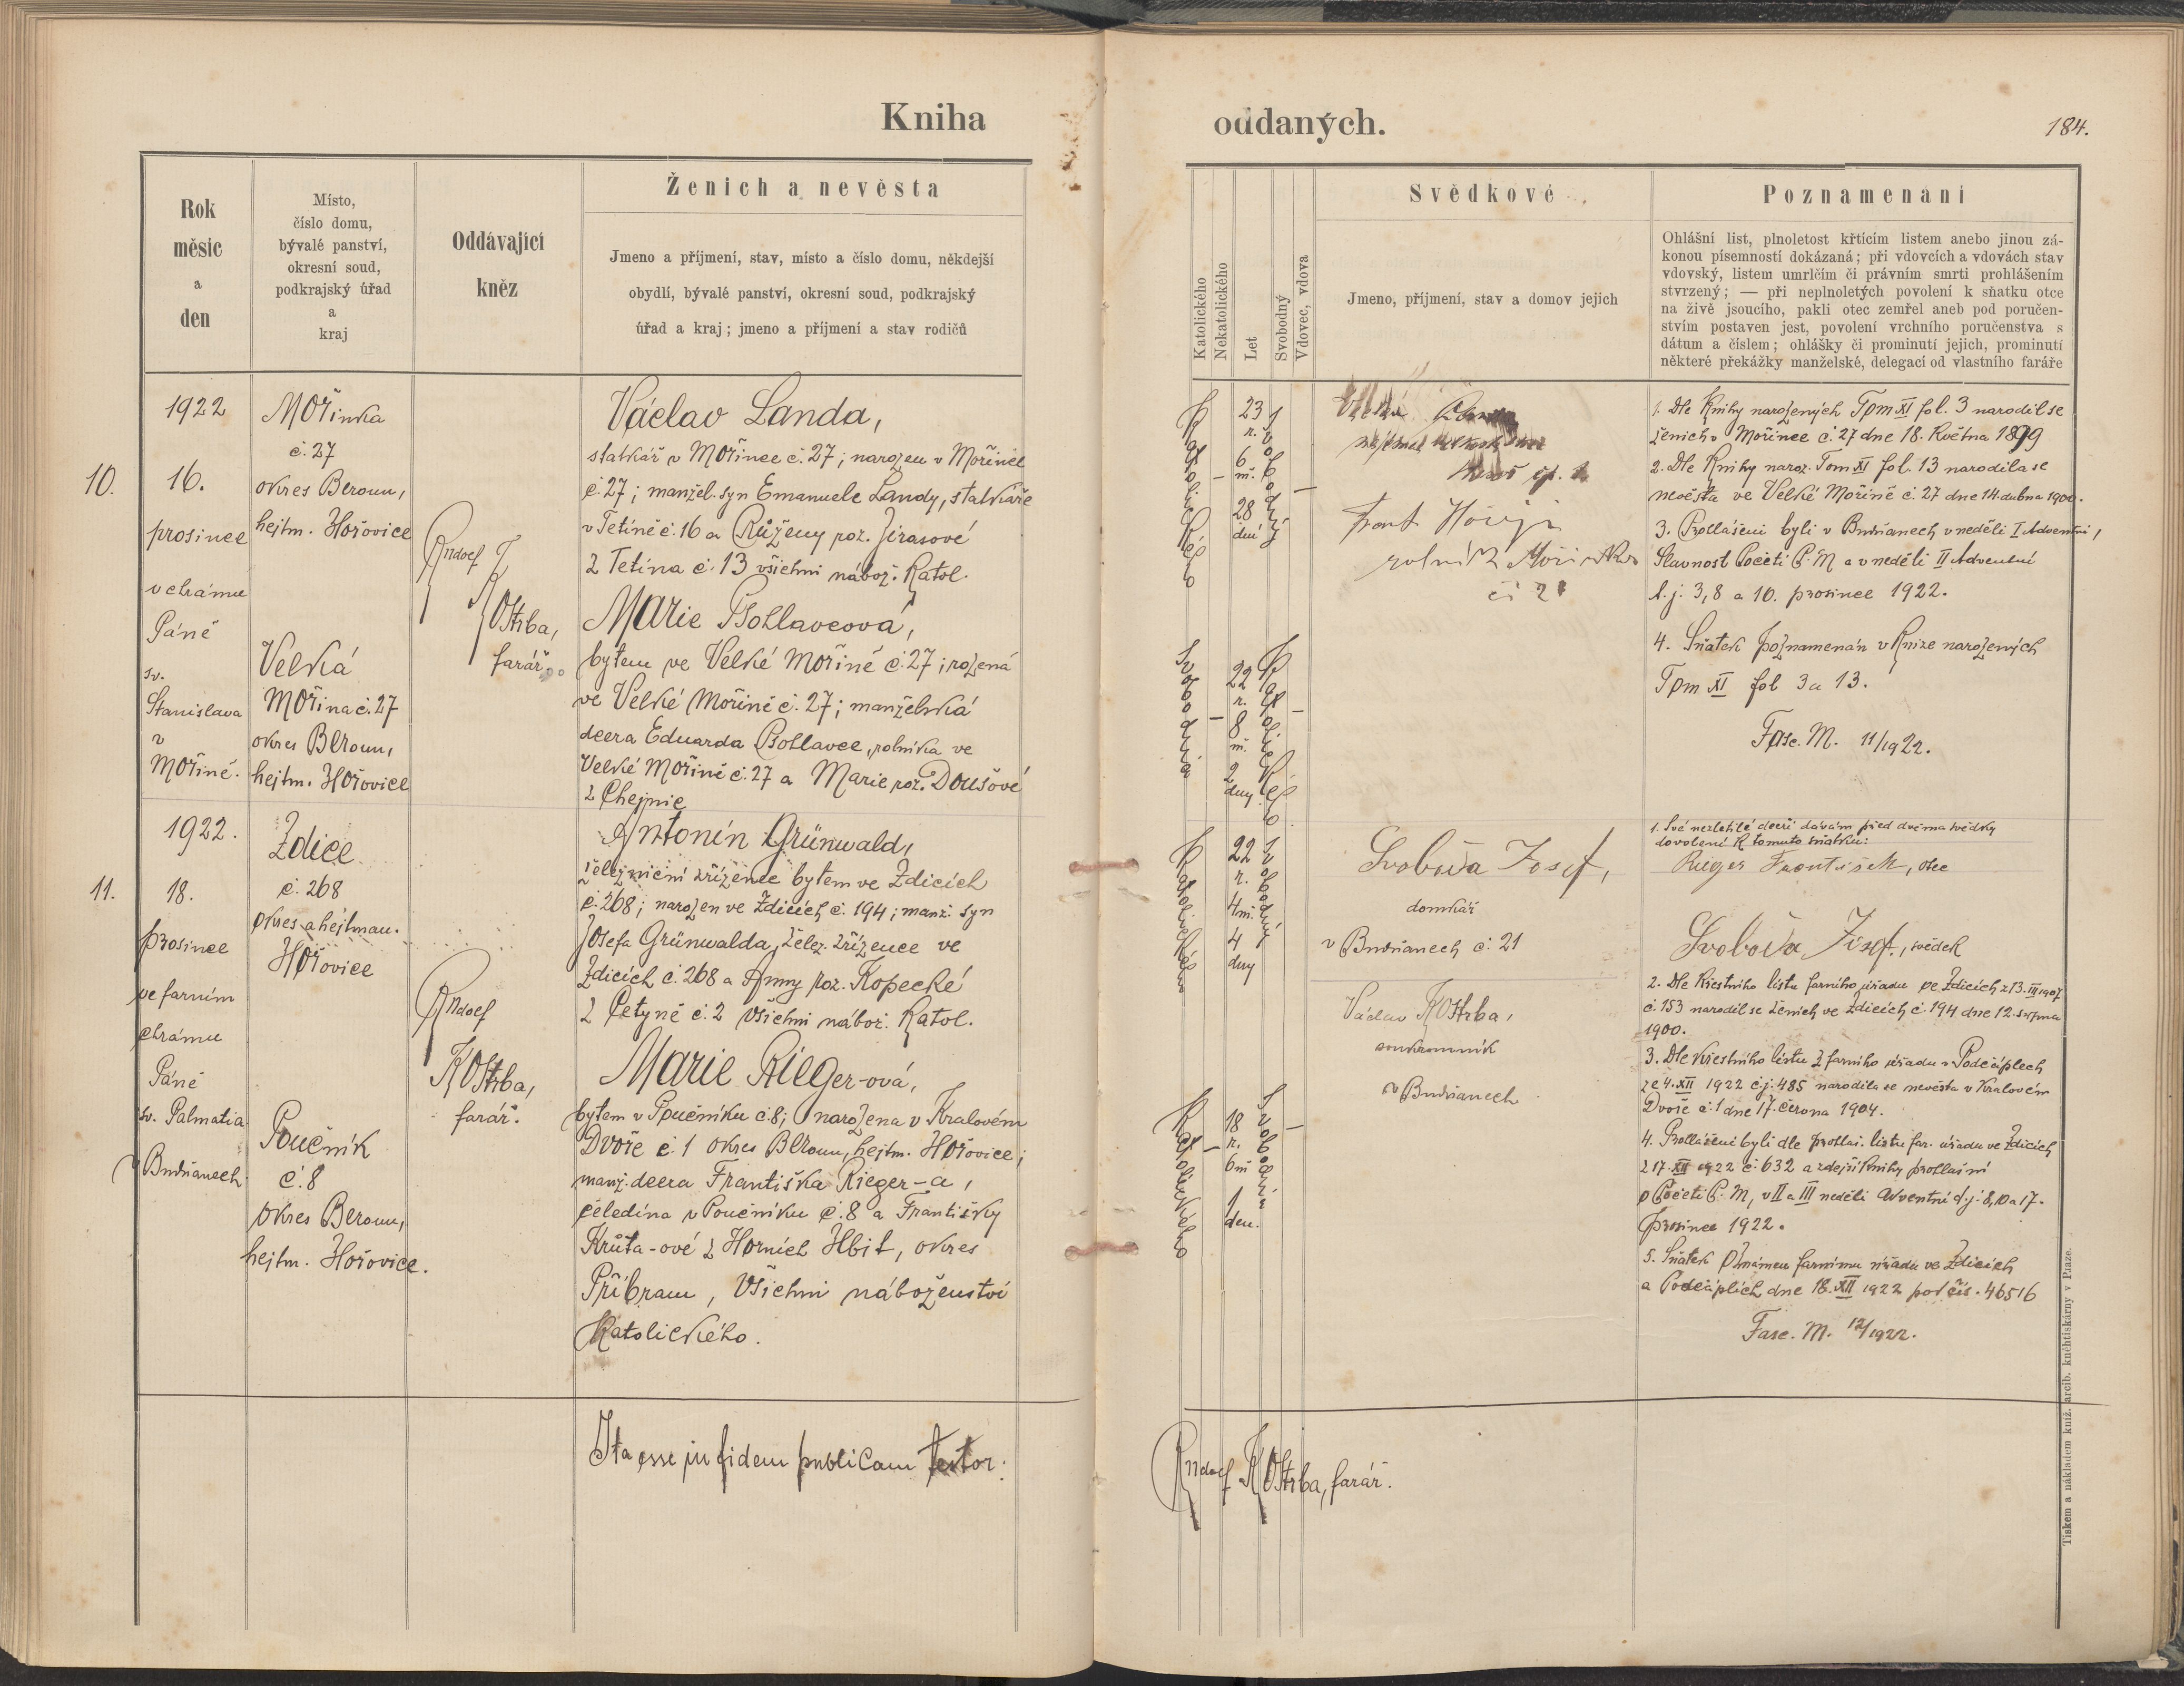 Kniha
Rok
měsíc
a
den
Místo,
číslo domu,
bývalé panství,
okresní soud,
podkrajský úřad
a
kraj
Oddávající
kněz
Ženich a nevěsta
Jmeno a příjmení, stav, místo a číslo domu, někdejší
obydlí, bývalé panství, okresní soud, podkrajský
úřad a kraj; jmeno a příjmení a stav rodičů
10.
1922
16.
prosince
v chrámu
Páně
sv.
Stanislava
v
Mořině.
Mořinka
č. 27
okres Beroun,
hejtm. Hořovice
Velká
Mořina č. 27
okres Beroun,
hejtm. Hořovice
Rudolf
Kostrba,
farář.
Václav Landa,
statkář v Mořince č. 27; narozen v Mořince
č. 27; manžel. syn Emanuele Landy, statkáře
v Tetíně č. 16 a Růženy roz. Jirasové
z Tetína č. 13 všichni nábož. katol.
Marie Pohlavcová,
bytem ve Velké Mořině č. 27; rozená
ve Velké Mořině č. 27; manželská
dcera Eduarda Pohlavce, rolníka ve
Velké Mořině č. 27 a Marie roz. Doušové
z Chejnic
11.
1922.
18.
prosince
ve farním
chrámu
Páně
sv. Palmatia
v Budňanech
Zdice
č. 268
okres a hejtman.
Hořovice
Poučník
č. 8
okres Beroun,
hejtm. Hořovice.
Rudolf
Kostrba,
farář.
Antonín Grünwald,
železniční zřízenec bytem ve Zdicích
č. 268; narozen ve Zdicích č. 194; manž. syn
Josefa Grünwalda, želez. zřízence ve
Zdicích č. 268 a Anny roz. Kopecké
z Cetyně č. 2 všichni nábož. katol.
Marie Rieger-ová,
bytem v Poučníku č. 8; narozena v Králověm
Dvoře č. 1 okres Beroun, hejtm. Hořovice;
manž. dcera Františka Rieger-a,
čeledína v Poučníku č. 8 a Františky
Krůta-ové z Horních Hbit, okres
Příbram, všichni náboženství
katolického.
Ita esse in fidem publicam testor:
oddaných.
184.
Katolického
Nekatolického
Let
Svobodný
Vdovec, vdova
Svědkové
Jmeno, příjmení, stav a domov jejich
Poznamenání
Ohlášní list, plnoletost křtícím listem anebo jinou zá-
konou písemností dokázaná; při vdovcích a vdovách stav
vdovský, listem umrlčím či právním smrti prohlášením
stvrzený; — při neplnoletých povolení k sňatku otce
na živě jsoucího, pakli otec zemřel aneb pod poručen-
stvím postaven jest, povolení vrchního poručenstva s
dátum a číslem; ohlášky či prominutí jejich, prominutí
některé překážky manželské, delegací od vlastního faráře
Katolického
–
23 r. 6 m. 28 dní
svobodný
–
Frant
rolník z Mořinky
Svobodná
–
22 r. 8 m. 2 dny
Katolického
–
1. Dle knihy narozených Tom XI fol. 3 narodil se
ženich v Mořince č. 27 dne 18. května 1899
2. Dle knihy naroz. Tom XI fol. 13 narodila se
nevěsta ve Velké Mořině č. 27 dne 14. dubna 1900.
3. Prohlášeni byli v Budňanech v neděli I Adventní,
Slavnost Početí P. M a v neděli II Adventní
t. j. 3, 8 a 10. prosince 1922.
4. Sňatek poznamenán v knize narozených
Tom XI fol 3 a 13.
Fasc. M. 11/1922.
Katolického
22 r. 4 m. 4 dny
Svobodný
Svoboda Josef,
domkář
v Budňanech č. 21
Václav Kostrba,
soukromník
v Budňanech
Katolického
–
18 r. 6 m 1 den.
Svobodná
–
1. Své nezletilé dceři dávám před dvěma svědky
dovolení k tomuto sňatku:
Rieger František, otec
Svoboda Josef, svědek
2. Dle křestního listu farního úřadu ve Zdicích z 13. III 1907
č. 153 narodil se ženich ve Zdicích č. 194 dne 12. srpna
1900.
3. Dle křestního listu z farního úřadu v Počáplech
ze 4. XII 1922 č.j. 485 narodila se nevěsta v Králověm
Dvoře č. 1 dne 17. června 1904.
4. Prohlášeni byli dle prohlaš. listu far. úřadu ve Zdicích
z 17. XII 1922 č. 632 a zdejší knihy prohlášní
o Početí P. M, v II a III neděli Adventní t. j. 8, 10 a 17.
prosince 1922.
5. Sňatek oznámen farnímu úřadu ve Zdicích
a Počáplích dne 18. XII 1922 pod čís. 465 16
Fasc. M. 12/1922.
Rudolf Kostrba, farář.
Tiskem a nákladem kníž. arcib. knihtiskárny v Praze.